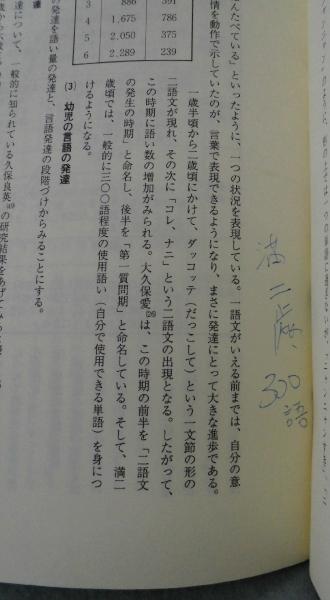 満二歳、
300
語
んたべている」といったように、一つの状況を表現している。一語文がいえる前までは、自分の意
情を動作で示していたのが、言葉で表現できるようになり、まさに発達にとって大きな進歩である。
3 886 591
4 1,675 786
5 2,050 375
6 2,289 239
一歳半頃から二歳頃にかけて、ダッコッテ(だっこして)という一文節の形の
二語文が現れ、その次に「コレ、ナニ」という二語文の出現となる。したがって、
この時期に語い数の増加がみられる。大久保愛(26)は、この時期の前半を「二語文
の発生の時期」と命名し、後半を「第一質問期」と命名している。そして、満二
歳頃では、一般的に三〇〇語程度の使用語い(自分で使用できる単語)を身につ
けるようになる。
(3) 幼児の言語の発達
の発達を語い量の発達と、言語発達の段階づけからみることにする。
達
達について、一般的に知られている久保良英の研究結果をあげてみ